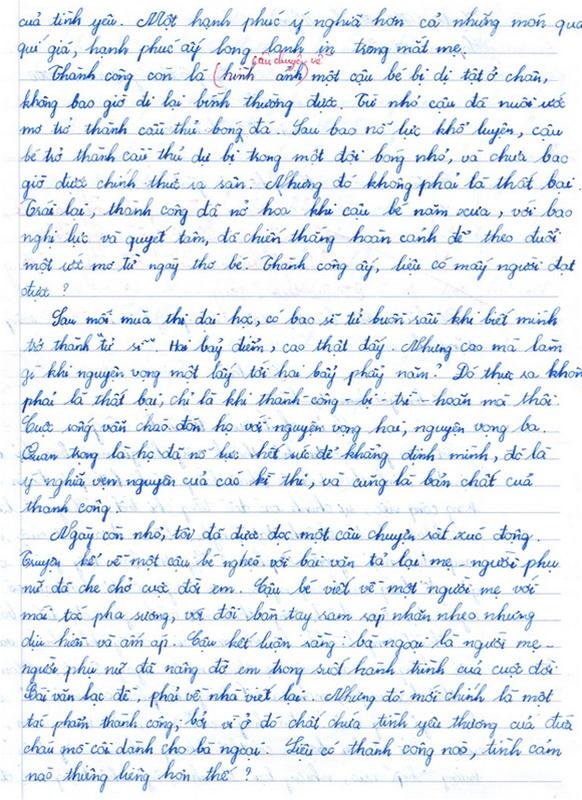 của tình yêu. Một hạnh phúc ý nghĩa hơn cả những món quà
quí giá, hạnh phúc ấy long lanh in trong mắt mẹ.
câu chuyện về
Thành công còn là (hình ảnh) một cậu bé bị dị tật ở chân,
không bao giờ đi lại bình thường được. Từ nhỏ cậu đã nuôi ước
mơ trở thành cầu thủ bóng đá. Sau bao nỗ lực khổ luyện, cậu
bé trở thành cầu thủ dự bị trong một đội bóng nhỏ, và chưa bao
giờ được chính thức ra sân. Nhưng đó không phải là thất bại.
Trái lại, thành công đã nở hoa khi cậu bé năm xưa, với bao
nghị lực và quyết tâm, đã chiến thắng hoàn cảnh để theo đuổi
một ước mơ từ ngày thơ bé. Thành công ấy, liệu có mấy người đạt
được ?
Sau mỗi mùa thi đại học, có bao sĩ tử buồn sầu khi biết mình
trở thành tử sĩ. Hai bảy điểm, cao thật đấy. Nhưng cao mà làm
gì khi nguyện vọng một lấy tới hai bảy phẩy năm? Đó thực ra khôn
phải là thất bại, chỉ là khi thành - công - bị - trì - hoãn mà thôi.
Cuộc sống vẫn chào đón họ với nguyện vọng hai, nguyện vọng ba.
Quan trọng là họ đã nỗ lực hết sức để khẳng định mình, đó là
ý nghĩa vẹn nguyên của các kì thi, và cũng là bản chất của
thành công.
Ngày còn nhỏ, tôi đã được đọc một câu chuyện rất xúc động.
Truyện kể về một cậu bé nghèo với bài văn tả lại mẹ - người phụ
nữ đã che chở cuộc đời em. Cậu bé viết về một người mẹ với
mái tóc pha sương, với đôi bàn tay ram ráp nhăn nheo nhưng
dịu hiền và ấm áp. Cậu kết luận rằng: bà ngoại là người mẹ -
người phụ nữ đã nâng đỡ em trong suốt hành trình của cuộc đời.
Bài văn lạc đề, phải về nhà viết lại. Nhưng đó mới chính là một
tác phẩm thành công, bởi vì ở đó chất chứa tình yêu thương của đứa
cháu mồ côi dành cho bà ngoại. Liệu có thành công nào, tình cảm
nào thiêng liêng hơn thế ?